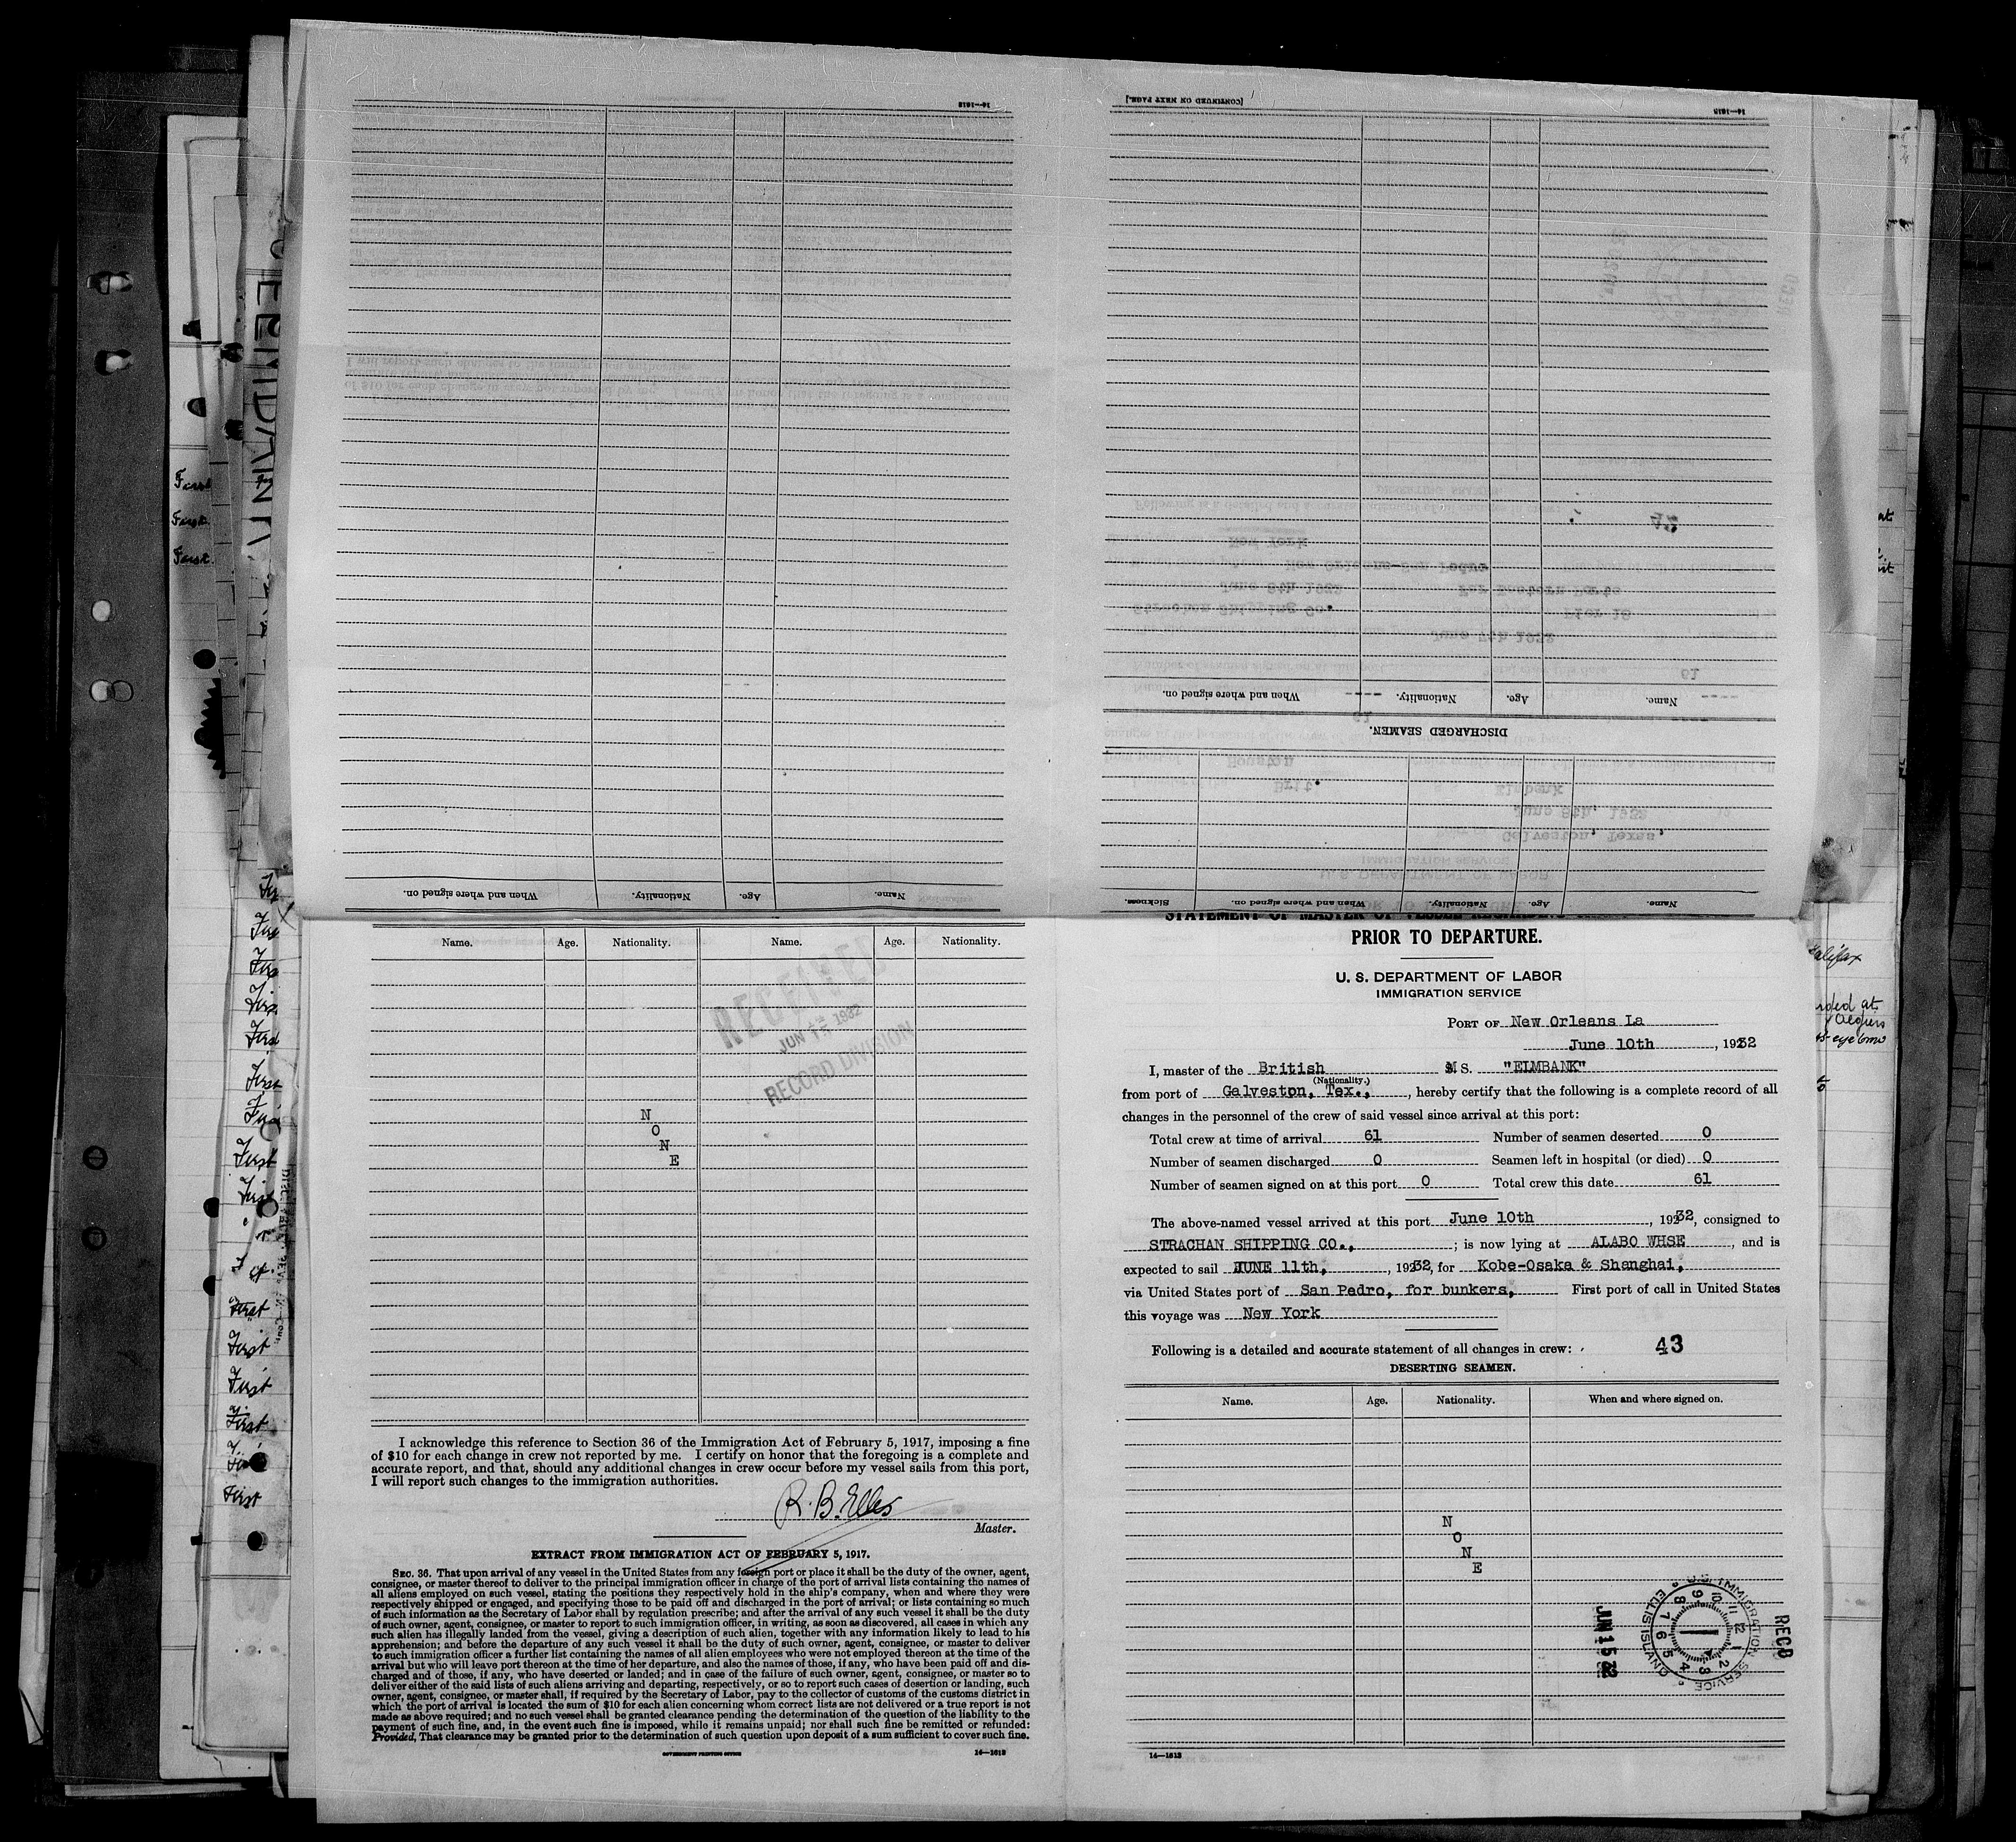 14—1613
14—1613
[CONTINUED ON NEXT PAGE.]
Name. Age. Nationality. When and where signed on.
DISCHARGED SEAMEN.
Name. Age. Nationality. When and where signed on. Sickness.
Name. Age. Nationality. When and where signed on.
PRIOR TO DEPARTURE.
U. S. DEPARTMENT OF LABOR
IMMIGRATION SERVICE
PORT OF New Orleans La
June 10th, 1932
I, master of the British M S. "ELMBANK"
(Nationality.)
from port of Galveston, Tex., , hereby certify that the following is a complete record of all
changes in the personnel of the crew of said vessel since arrival at this port:
Total crew at time of arrival 61 Number of seamen deserted 0
Number of seamen discharged 0 Seamen left in hospital (or died) 0
Number of seamen signed on at this port 0 Total crew this date 61
The above-named vessel arrived at this port June 10th , 1932, consigned to
STRACHAN SHIPPING CO., ; is now lying at ALABO WHSE , and is
expected to sail JUNE 11th, , 1932, for Kobe-Osaka & Shanghai,
via United States port of San Pedro, for bunkers, First port of call in United States
this voyage was New York
Following is a detailed and accurate statement of all changes in crew: 43
DESERTING SEAMEN.
Name. Age. Nationality. When and where signed on.
N
O
N
E
REC'D
U.S. IMMIGRATION SERVICE
ELLIS ISLAND
JUN 15 32
14—1613
Name. Age. Nationality. Name. Age. Nationality.
RECEIVED
1932
RECORD DIVISION
N
O
N
E
I acknowledge this reference to Section 36 of the Immigration Act of February 5, 1917, imposing a fine
of $10 for each change in crew not reported by me. I certify on honor that the foregoing is a complete and
accurate report, and that, should any additional changes in crew occur before my vessel sails from this port,
I will report such changes to the immigration authorities.
R. B. Elles
Master.
EXTRACT FROM IMMIGRATION ACT OF FEBRUARY 5, 1917.
SEC. 36. That upon arrival of any vessel in the United States from any foreign port or place it shall be the duty of the owner, agent,
consignee, or master thereof to deliver to the principal immigration officer in charge of the port of arrival lists containing the names of
all aliens employed on such vessel, stating the positions they respectively hold in the ship's company, when and where they were
respectively shipped or engaged, and specifying those to be paid off and discharged in the port of arrival; or lists containing so much
of such information as the Secretary of Labor shall by regulation prescribe; and after the arrival of any such vessel it shall be the duty
of such owner, agent, consignee, or master to report to such immigration officer, in writing, as soon as discovered, all cases in which any
such alien has illegally landed from the vessel, giving a description of such alien, together with any information likely to lead to his
apprehension; and before the departure of any such vessel it shall be the duty of such owner, agent, consignee, or master to deliver
to such immigration officer a further list containing the names of all alien employees who were not employed thereon at the time of the
arrival but who will leave port thereon at the time of her departure, and also the names of those, if any, who have been paid off and dis-
charged and of those, if any, who have deserted or landed; and in case of the failure of such owner, agent, consignee, or master so to
deliver either of the said lists of such aliens arriving and departing, respectively, or so to report such cases of desertion or landing, such
owner, agent, consignee, or master shall, if required by the Secretary of Labor, pay to the collector of customs of the customs district in
which the port of arrival is located the sum of $10 for each alien concerning whom correct lists are not delivered or a true report is not
made as above required; and no such vessel shall be granted clearance pending the determination of the question of the liability to the
payment of such fine, and, in the event such fine is imposed, while it remains unpaid; nor shall such fine be remitted or refunded:
Provided, That clearance may be granted prior to the determination of such question upon deposit of a sum sufficient to cover such fine.
GOVERNMENT PRINTING OFFICE 14—1613